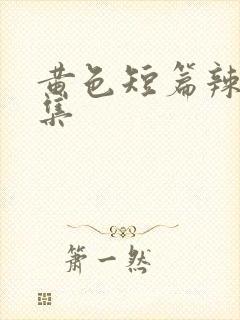 黄色短篇辣
集
箫一然